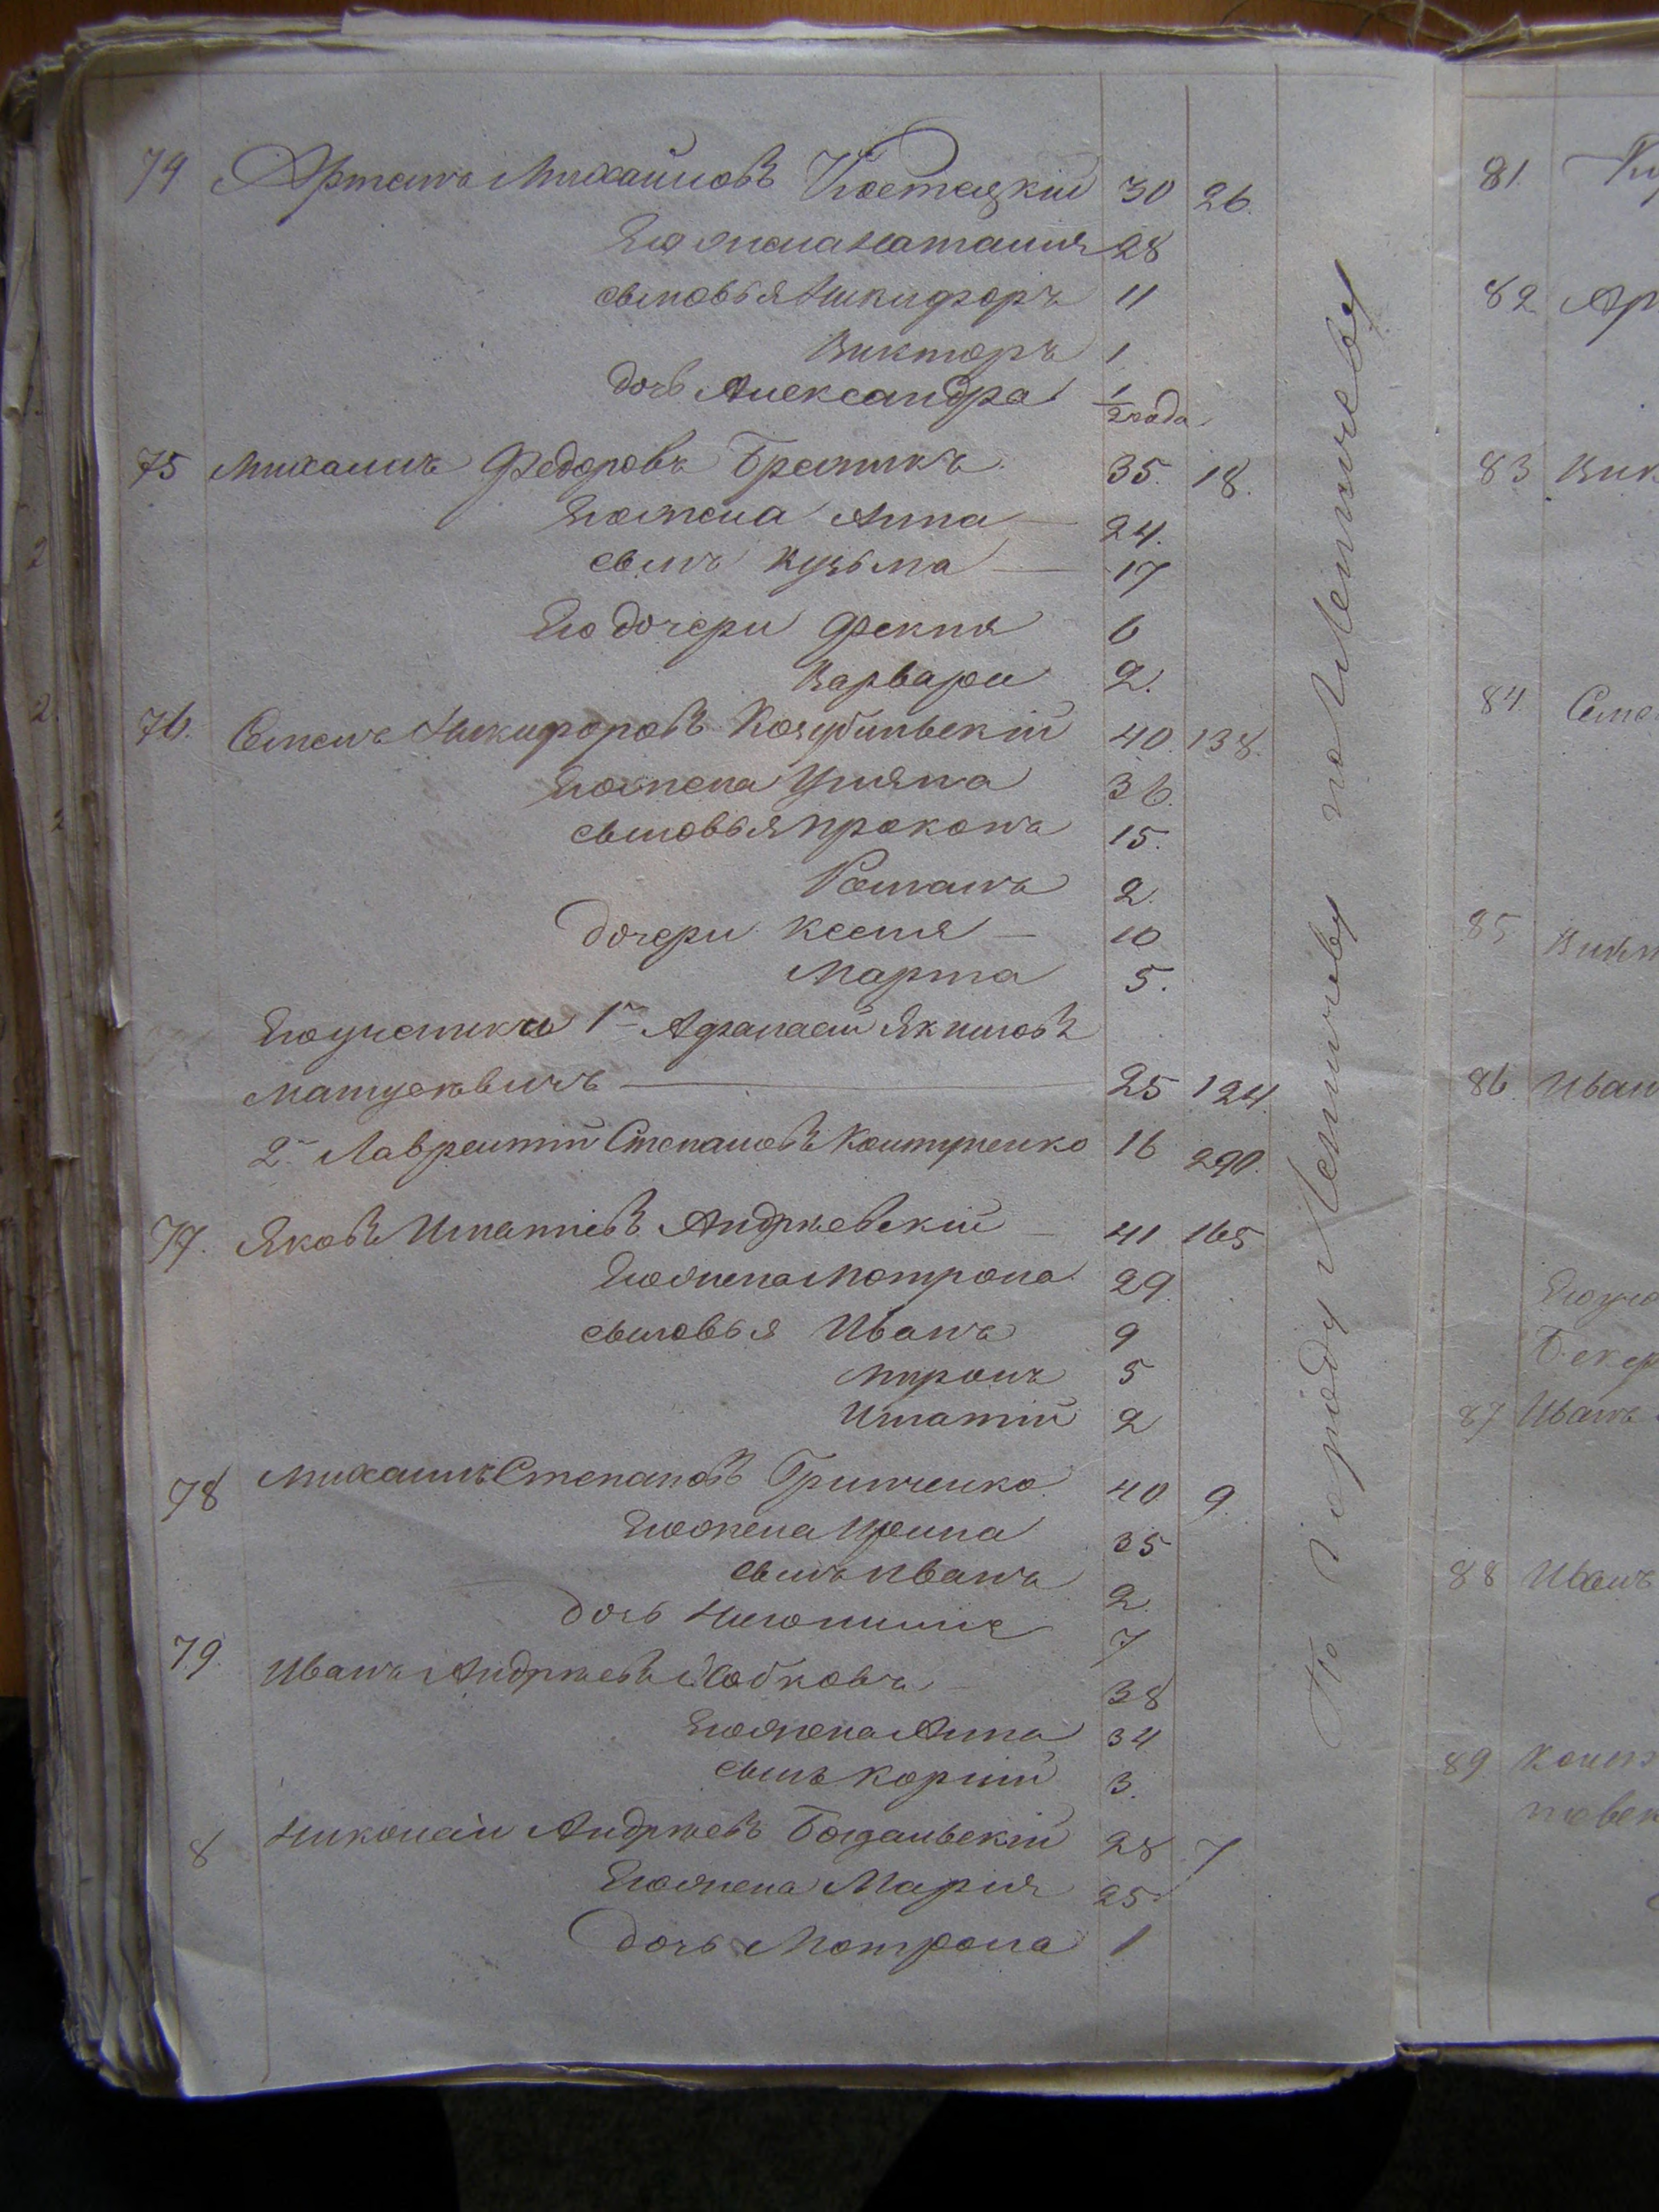 74 Артемъ Михайловъ Костецкій 30 26.
Его жена Наталия 28
сыновья Никифоръ 11
Викторъ 1
дочь Александра 1/2 года
75 Михаилъ Федоровъ 35. 18.
Его жена Анна 24.
сынъ Кузьма 17
Его дочери Фекла 6
Варвара 2.
76. Семенъ Никифоровъ 40. 138.
Его жена Уляна 36.
сыновья Прокопъ 15.
Романъ 2.
дочери Ксенія 10
Марта 5.
Его ученики 1й Афанасій Якимовъ
Матускевичъ 25 124.
2й Лаврентій Степановъ 16 290.
77. Яковъ Игнатіевъ Андріевскій 41 165
Его жена Мотрона 29.
сыновья Иванъ 9
Миронъ 5
Игнатій 2
78 Михаилъ Степановъ Гринченко 40 9.
Его жена Ирина 35
сынъ Иванъ 2.
дочь 7
79. Иванъ Андреевъ 38
Его жена Анна 34
сынъ Корній 3.
8 Николай Андреевъ 28 7
Его жена Марія 25.
дочь Мотрона 1
По городу
81.
82 Ар
83 Вик
84 Семе
85 Викт
86. Иван
Его уче
Бекер
87 Иванъ
88 Иванъ
89